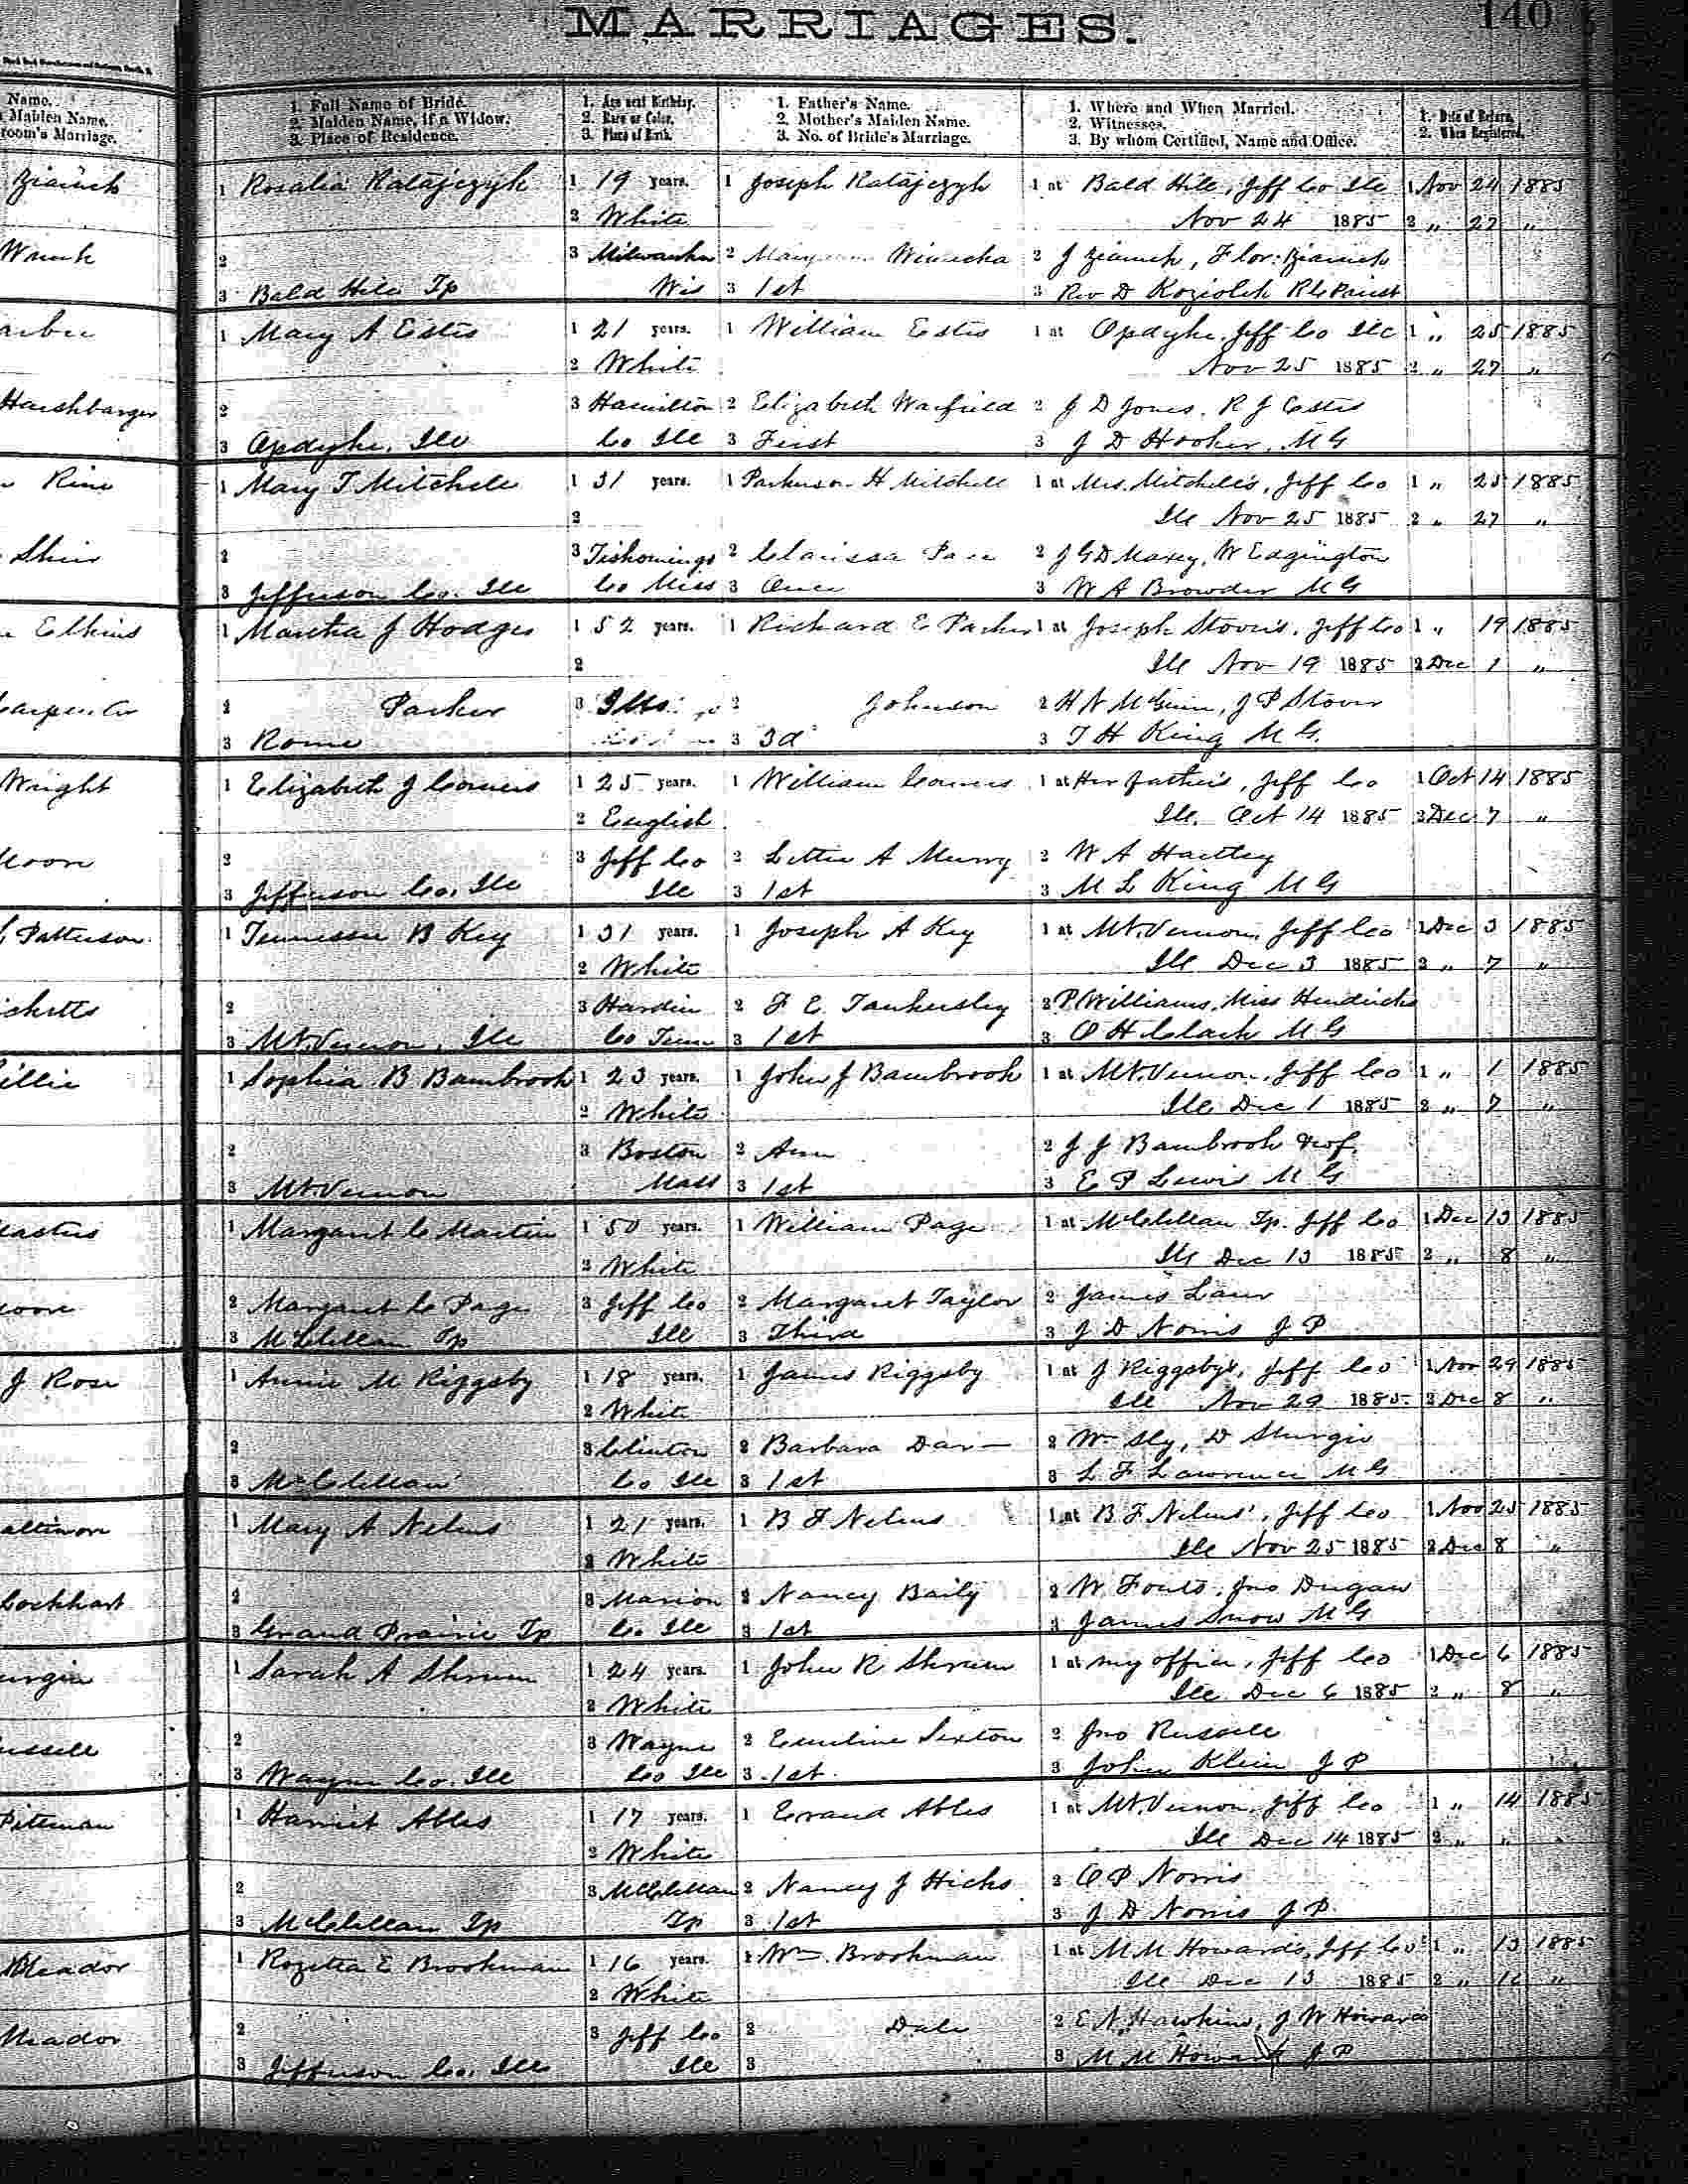 MARRIAGES.
140
Name.
Maiden Name.
room's Marriage.
1. Full Name of Bride.
2. Maiden Name, if a Widow.
3. Place of Residence.
1. Age next Birthday.
2. Race or Color.
3. Place of Birth.
1. Father's Name.
2. Mother's Maiden Name.
3. No. of Bride's Marriage.
1. Where and When Married.
2. Witnesses.
3. By whom Certified, Name and Office.
1. Date of Return.
2. When Registered.
1 Rosalia Ratajczyk 1 19 years. 1 Joseph Ratajczyk 1 at Bald Hill, Jeff Co Ill 1 Nov 24 1885
2 White Nov 24 1885 2 " 27 "
2 3 Milwaukee 2 Mary 2 J
3 Bald Hill Tp Wis 3 1st 3 Rev D Koziolek R C Priest
1 Mary A Estis 1 21 years. 1 William Estis 1 at Opdyke, Jeff Co Ill 1 " 25 1885
2 White Nov 25 1885 2 " 27 "
Harshbarger 2 3 Hamilton 2 Elizabeth Warfield 2 J D Jones, R J Estis
3 Opdyke, Ill Co Ill 3 First 3 J D Hooker, M G
Rine 1 Mary T Mitchell 1 31 years. 1 Parkerson H Mitchell 1 at Mrs. Mitchell's, Jeff Co 1 " 25 1885
2 Ill Nov 25 1885 2 " 27 "
2 3 Tishomingo 2 Clarissa Pace 2 J G D Maxey, W Edgington
3 Jefferson Co. Ill Co Miss 3 Once 3 W A Browder M G
Elkins 1 Martha J Hodges 1 52 years. 1 Richard E Parker 1 at Joseph Stover's, Jeff Co 1 " 19 1885
2 Ill Nov 19 1885 2 Dec 1 "
2 Parker 3 Ills 2 Johnson 2 H N McGuin, J P Stover
3 Rome 3 3d 3 T H King M G.
Wright 1 Elizabeth J Conners 1 25 years. 1 William Conners 1 at Her father's, Jeff Co 1 Oct 14 1885
2 English Ill. Oct 14 1885 2 Dec 7 "
2 3 Jeff Co 2 Lettie A Murry 2 W A Hartley
3 Jefferson Co. Ill Ill 3 1st 3 M L King M G
Patterson 1 Tennessee B Key 1 31 years. 1 Joseph A Key 1 at Mt. Vernon, Jeff Co 1 Dec 3 1885
2 White Ill Dec 3 1885 2 " 7 "
2 3 Hardin 2 F E Tankersley 2 P. Williams, Miss Hendricks
3 Mt. Vernon, Ill Co Tenn 3 1st 3 O H Clark M G
1 Sophia B Bambrook 1 23 years. 1 John J Bambrook 1 at Mt. Vernon, Jeff Co 1 " 1 1885
2 White Ill Dec 1 1885 2 " 7 "
2 3 Boston 2 Ann 2 J J Bambrook & wf.
3 Mt. Vernon Mass 3 1st 3 E P Lewis M G
1 Margaret C Martin 1 50 years. 1 William Page 1 at McClellan Tp. Jeff Co 1 Dec 13 1885
2 White Ill Dec 13 1885 2 " 8 "
2 Margaret C Page 3 Jeff Co 2 Margaret Taylor 2 James Laur
3 McClellan Tp Ill 3 Third 3 J D Norris J P
J Rose 1 Annie M Riggsby 1 18 years. 1 James Riggsby 1 at J Riggsby's, Jeff Co 1 Nov 29 1885
2 White Ill Nov 29 1885. 2 Dec 8 "
2 3 Clinton 2 Barbara Dar— 2 Wm Sly, D Sturgis
3 McClellan Co Ill 3 1st 3 L F Lawrence M G
1 Mary A Nelms 1 21 years. 1 B F Nelms 1 at B F Nelms', Jeff Co 1 Nov 25 1885
2 White Ill Nov 25 1885 2 Dec 8 "
Lockhart 2 3 Marion 2 Nancy Baily 2 W Fouts, Jno Dugan
3 Grand Prairie Tp Co Ill 3 1st 3 James Snow M G
1 Sarah A Shrum 1 24 years. 1 John R Shrum 1 at my office, Jeff Co 1 Dec 6 1885
2 White Ill Dec 6 1885 2 " 8 "
2 3 Wayne 2 Emeline Sexton 2 Jno Russell
3 Wayne Co. Ill Co Ill 3 1st. 3 John Klein J P
Pittman 1 Harriet Ables 1 17 years. 1 Ables 1 at Mt. Vernon, Jeff Co 1 " 14 1885
2 White Ill Dec 14 1885 2 " " "
2 3 McClellan 2 Nancy J Hicks 2 O P Norris
3 McClellan Tp Tp 3 1st 3 J D Norris J P.
Meador 1 Rozetta E Brookman 1 16 years. 1 Wm. Brookman 1 at M M Howards, Jeff Co 1 " 13 1885
2 White Ill Dec 13 1885 2 " 16 "
Meador 2 3 Jeff Co 2 Dale 2 E N Hawkins, J W Howard
3 Jefferson Co. Ills Ill 3 3 M M Howard J P